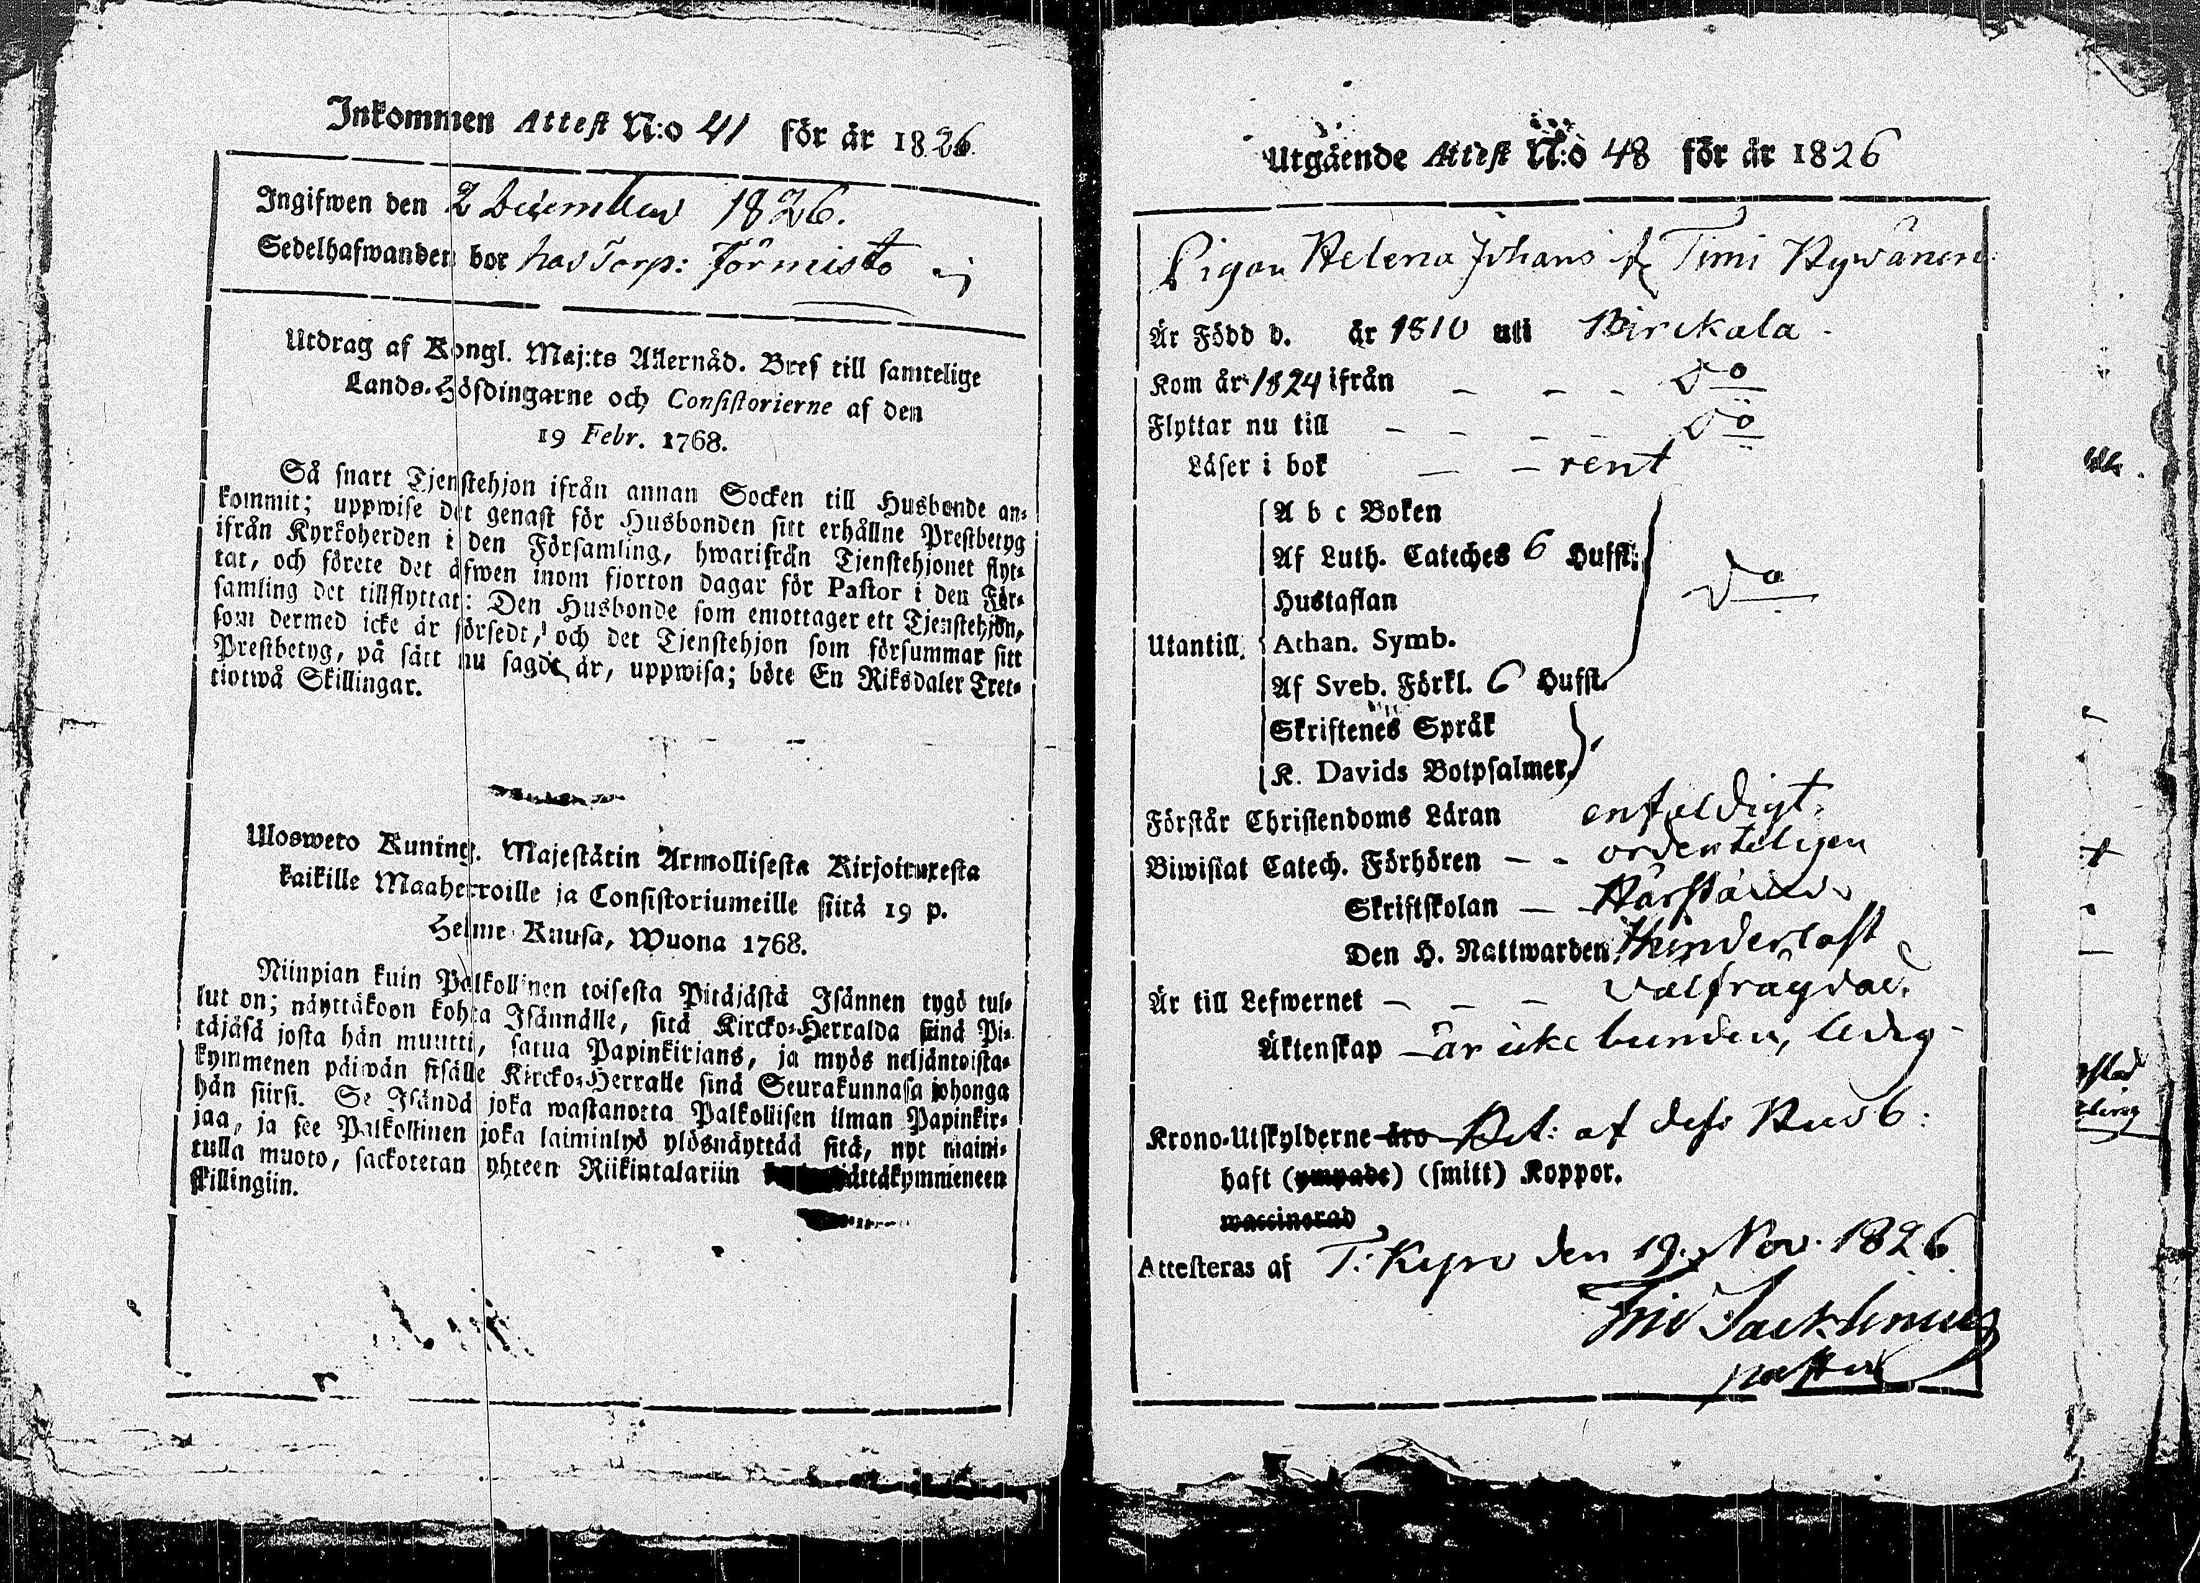 Inkommen Attest N:o 41 för år 1826.
Ingifwen den 2 December 1826.
Sedelhafwanden bor hos Torp: Jörmisto
Utdrag af Kongl. Maj:ts Allernåd. Bref till samtelige
Lands-Höfdingarne och Consistorierne af den
19 Febr. 1768.
Så snart Tjenstehjon ifrån annan Socken till Husbonde an-
kommit; uppwise det genast för Husbonden sitt erhållne Prestbetyg
ifrån Kyrkoherden i den Församling, hwarifrån Tjenstehjonet flyt-
tat, och förete det äfwen inom fjorton dagar för Pastor i den För-
samling det tillflyttat: Den Husbonde som emottager ett Tjenstehjon,
som dermed icke är försedt, och det Tjenstehjon som försummar sitt
Prestbetyg, på sätt nu sagdt är, uppwisa; böte En Riksdaler Tret-
tiotwå Skillingar.
Ulosweto Kuning. Majestätin Armollisesta Kirjoituxesta
kaikille Maaherroille ja Consistoriumeille siitä 19 p.
Helme Kuusa, Wuona 1768.
Niinpian kuin Palkollinen toisesta Pitäjästä Isännen tygö tul-
lut on; näyttäkoon kohta Isännälle, sitä Kircko-Herralda siinä Pi-
täjäsä josta hän muutti, satua Papinkirjans, ja myös neljäntoista-
kymmenen päiwän sisälle Kircko-Herralle siinä Seurakunnasa johonga
hän siirsi. Se Isändä joka wastanotta Palkollisen ilman Papinkir-
jaa, ja see Palkollinen joka laiminlyö ylösnäyttää sitä, nyt maini-
tulla muoto, sackotetan yhteen Riikintalariin ättäkymmeneen
skillingiin.
Utgående Attest N:o 48 för år 1826
Pigan Helena Johans f Timi Hywänen
Är Född d. år 1810 uti Birckala
Kom år 1824 ifrån – – – Do
Flyttar nu till – – – – Do
Läser i bok – – rent
A b c Boken
Af Luth. Cateches 6 Hufst.
Hustaflan
Do
Utantill.
Athan. Symb.
Af Sveb. Förkl. 6 Hufst.
Skriftenes Språk
K. Davids Botpsalmer
Förstår Christendoms Läran enfaldigt
Biwistat Catech. Förhören – – ordenteligen
Skriftskolan –
Den H. Nattwarden
Är till Lefwernet – – – välfrägdad
Äktenskap – är icke bunden, ledig
Krono-Utskylderne äro Bet: af dess Husb:
haft (ympade) (smitt) Koppor.
waccinerad
Attesteras af T: Kyro den 19. Nov. 1826